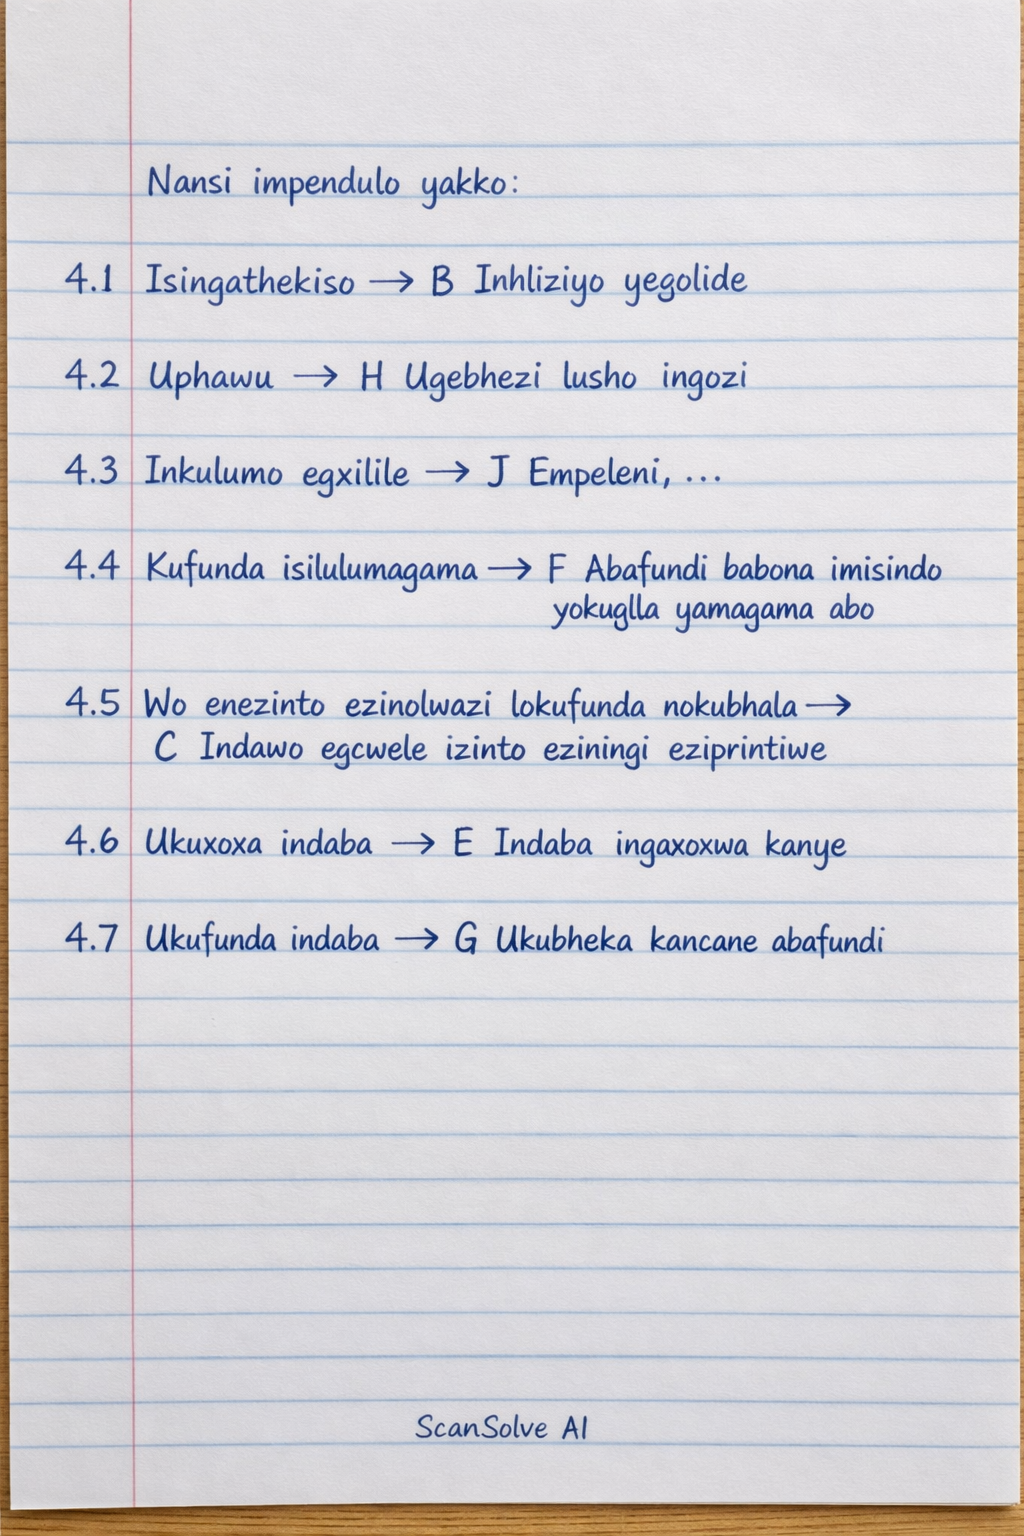 Nansi impendulo yakko:
4.1 Isingathekiso → B Inhliziyo yegolide
4.2 Uphawu → H Ugebhezi lusho ingozi
4.3 Inkulumo egxilile → J Empeleni, ...
4.4 Kufunda isilulumagama → F Abafundi babona imisindo
yokuglla yamagama abo
4.5 Wo enezinto ezinolwazi lokufunda nokubhala →
C Indawo egcwele izinto eziningi eziprintiwe
4.6 Ukuxoxa indaba → E Indaba ingaxoxwa kanye
4.7 Ukufunda indaba → G Ukubheka kancane abafundi
ScanSolve AI